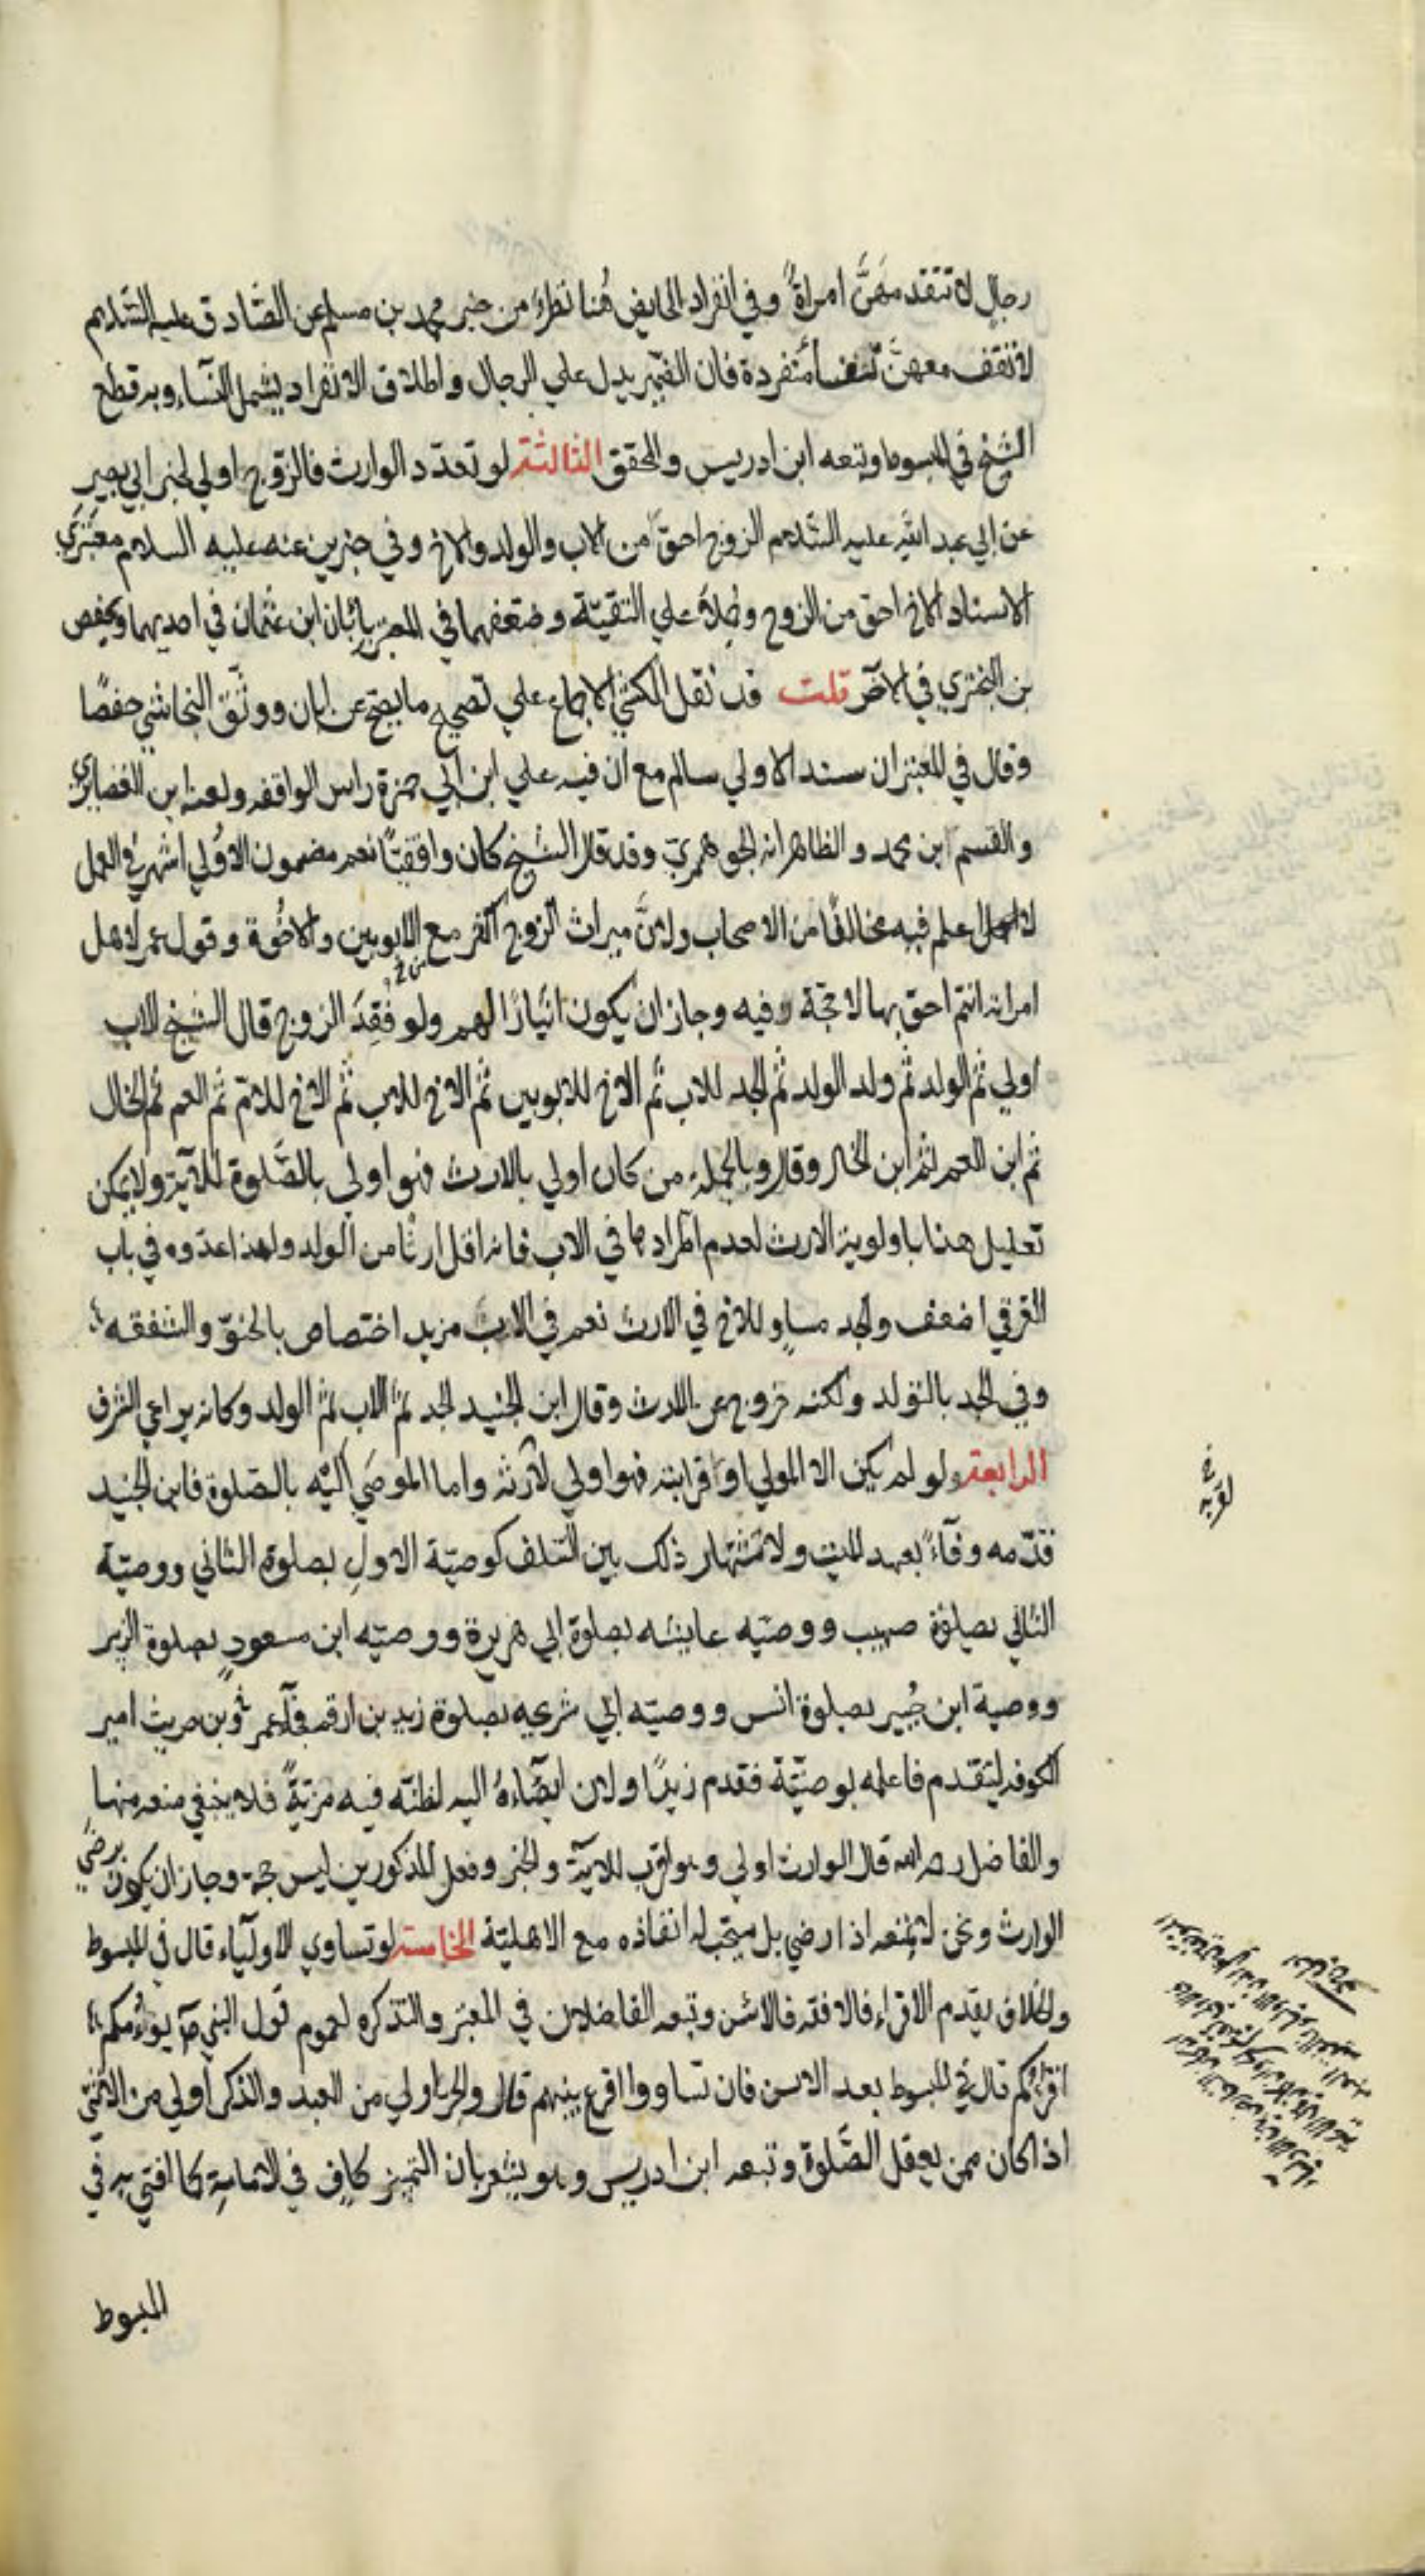 رجال لا تتقدمهنّ امراة وفي انفراد الحايض هنا نظر من خبر محمد بن مسلم عن الصّادق عليه السّلام
لا تقف معهنّ تقف منفردة فان الضمير يدل علي الرجال واطلاق الانفراد يشمل النّساء وبه قطع
الشيخ في المبسوط وتبعه ابن ادريس والمحقق الثالثة لو تعدّد الوارث فالزوج اولي لخبر ابي بصير
عن ابي عبد الله عليه السّلام الزوج احق من الاب والولد والاخ وفي خبرين عنه عليه السلام معتبري
الاسناد الاخ احق من الزوج وحملا علي التقيّة وضعفهما في المعتبر بابان ابن عثمان في احديهما وبحفص
بن البختري في الاخر قلت قد نقل الكشي الاجماع علي تصحيح ما يصح عن ابان ووثّق النجاشي حفصًا
وقال في المعتبر ان سند الاولي سالم مع ان فيه علي ابن ابي حمزة راس الواقفه ولعنه ابن الغضايري
والقسم ابن محمد والظاهر انه الجوهري وقد قال الشيخ كان واقفيًّا نعم مضمون الاولي اشهر في العمل
لا اعلم فيه مخالفًا من الاصحاب ولانّ ميراث الزوج اكثر مع الابوين والاخوة وقول عمر لاهل
امراته انتم احق بها لا حجة فيه وجاز ان يكون ايثارًا لهم ولو فقد الزوج قال الشيخ الاب
اولي ثم الولد ثم ولد الولد ثم الجد للاب ثم الاخ للابوين ثم الاخ للاب ثم الاخ للام ثم العم ثم الخال
ثم ابن العم ثم ابن الخال وقال وبالجملة من كان اولي بالارث فهو اولي بالصّلوة للاية ولا يمكن
تعليل هذا باولوية الارث لعدم اطرادها في الاب فانه اقل ارثا من الولد ولهذا عدوه في باب
الغرقي اضعف والجد مساوٍ للاخ في الارث نعم في الاب مزيد اختصاص بالحنوّ والشفقه
وفي الجد بالتولد ولكنه خروج عن الارث وقال ابن الجنيد الجد ثم الاب ثم الولد وكانه يراعي الشرف
الرابعة ولو لم يكن الا المولي او قرابته فهو اولي لارثه واما الموصَي اليه بالصلوة فابن الجنيد
قدّمه وفآءً بعهد الميت ولاشتهار ذلك بين السّلف كوصيّة الاول بصلوة الثاني ووصيّة
الثاني بصلوة صهيب ووصيّه عايشه بصلوة ابي هريرة ووصيّه ابن مسعودٍ بصلوة الزبير
ووصية ابن جُبير بصلوة انس ووصيّه ابي شريحه بصلوة زيد بن ارقم فجآء عمرو بن حريث امير
الكوفه ليتقدم فاعلمه بوصيّة فقدم زيدًا ولان ايصاءه اليه لظنّه فيه مزيّةً فلا ينبغي منعه منها
والفاضل رحمه الله قال الوارث اولي وهو اقرب للاية والخبر وفعل المذكورين ليس حجة وجاز ان يكون برضي
الوارث ونحن لا نمنعه اذا رضي بل يستحب له انفاذه مع الاهليّة الخامسة لو تساوي الاولياء قال في المبسوط
والخلاف يقدم الاقراء فالافقه فالاسن وتبعه الفاضلان في المعتبر والتذكره لعموم قول النبي ص يؤمكم
اقرؤكم قال في المبسوط بعد الاسن فان تساووا اقرع بينهم قال والحر اولي من العبد والذكر اولي من الانثي
اذا كان ممن يعقل الصّلوة وتبعه ابن ادريس وهو يشعر بان التميز كافٍ في الامامة كما افتي به في
المبسوط